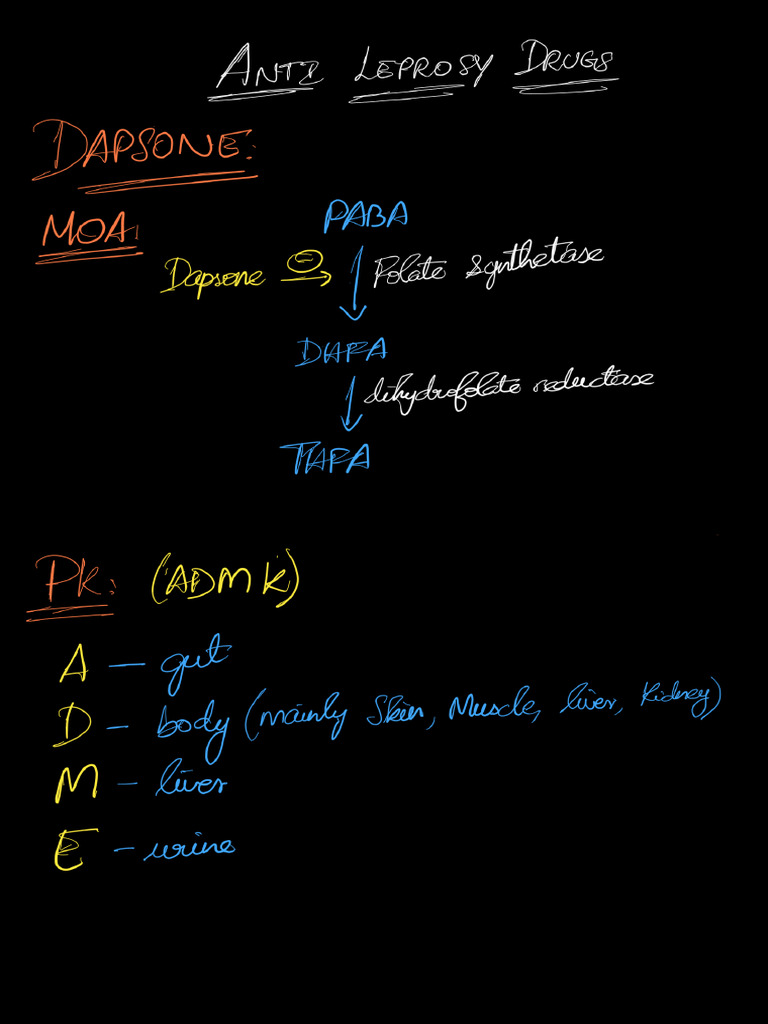 ANTI LEPROSY DRUGS
DAPSONE:
MOA:
PABA
Dapsone ⊖ → Folate synthetase
DHFA
dihydrofolate reductase
THFA
PK: (ADMK)
A — gut
D — body (mainly Skin, Muscle, liver, Kidney)
M — liver
E — urine